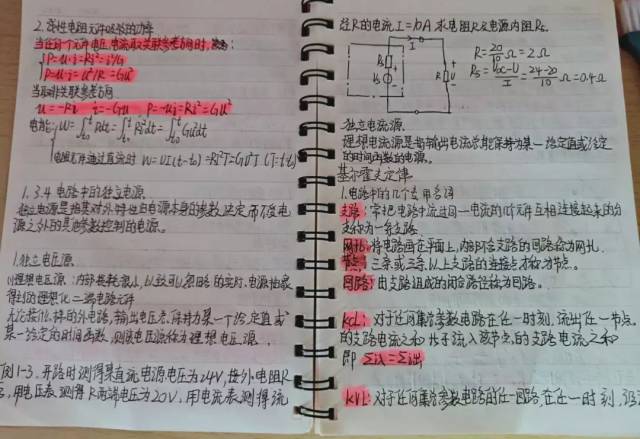 2.线性电阻元件吸收的功率
当任何一个元件电压、电流取关联参考方向时,
P=u·i=Ri²=i²/G
P=u·i=u²/R=Gu²
当取非关联参考方向
u=-Ri i=-Gu P=-ui=Ri²=Gu²
电能: W=∫Pdt=∫Ri²dt=∫Gu²dt
电阻元件通过直流时 W=UI(t-t₀)=RI²T=GU²T (T=t-t₀)
1.3.4 电路中的独立电源
独立电源是指其对外特性由电源本身的参数决定,而不受电
源之外的其他参数控制的电源。
1.独立电压源
(1)理想电压源:内部损耗很小,以致可以忽略的实际电源抽象
得到的理想化二端电路元件
无论接什么样的外电路,输出电压总保持为某一个给定值或
某一给定的时间函数,则该电压源称为理想电压源.
例1-3.开路时测得某直流电源电压为24V,接外电阻R
后,用电压表测得R两端电压为20V,用电流表测得流
经R的电流I=10A 求电阻R及电源内阻Rs.
I
Rs
Us
R
U
R=20/10Ω=2Ω
Rs=(Uoc-U)/I=(24-20)/10Ω=0.4Ω
独立电流源.
理想电流源是指输出电流总能保持为某一给定值或给定
的时间函数的电源。
基尔霍夫定律
1.电路中的几个专用名词
支路:常把电路中流过同一电流的几个元件互相连接起来的分
支称为一条支路
网孔:将电路画在平面上,内部不含支路的回路称为网孔.
节点:三条或三条以上支路的连接点称为节点。
回路:由支路组成的闭合路径称为回路.
KCL:对于任何集总参数电路在任一时刻,流出任一节点
的支路电流之和等于流入该节点的支路电流之和
即 Σi入=Σi出
KVL:对于任何集总参数电路的任一回路,在任一时刻,沿